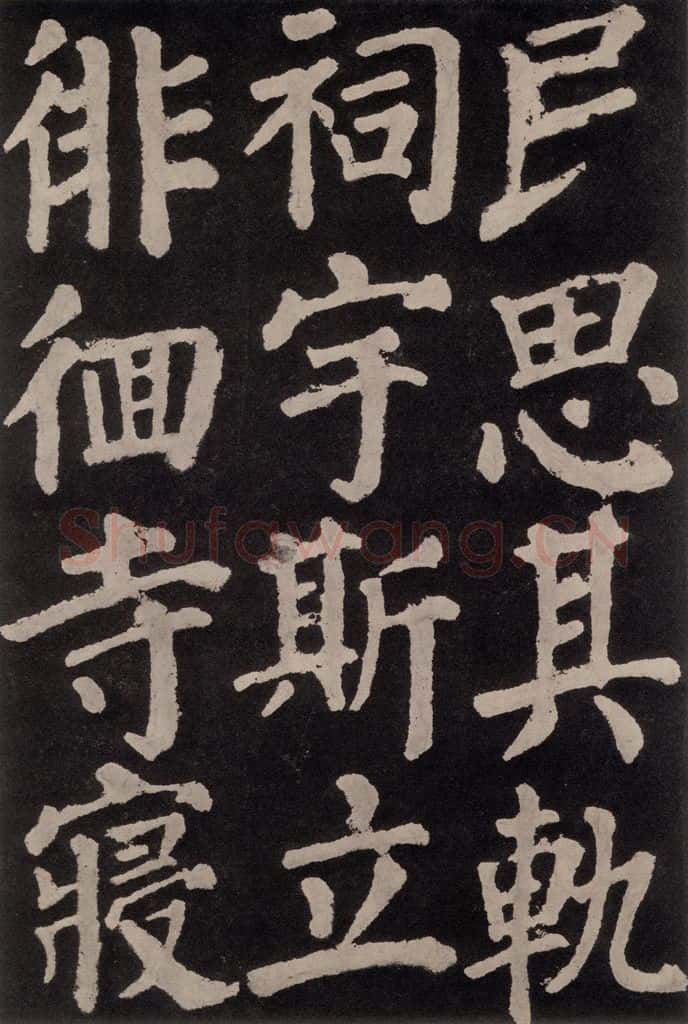 民思其軌
祠宇斯立
徘徊寺寢
Shufawang.CN